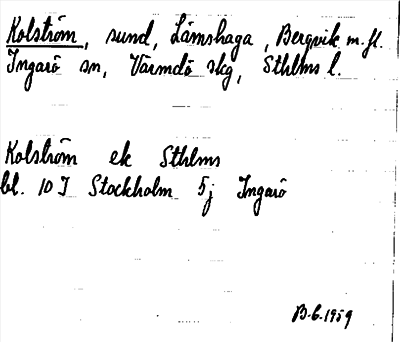 Kolström, sund, Lämshaga, Bergvik m.fl.
Ingarö sn, Värmdö skg, Sthlms l.
Kolström ek Sthlms
bl. 10 I Stockholm 5j Ingarö
B.G.1959